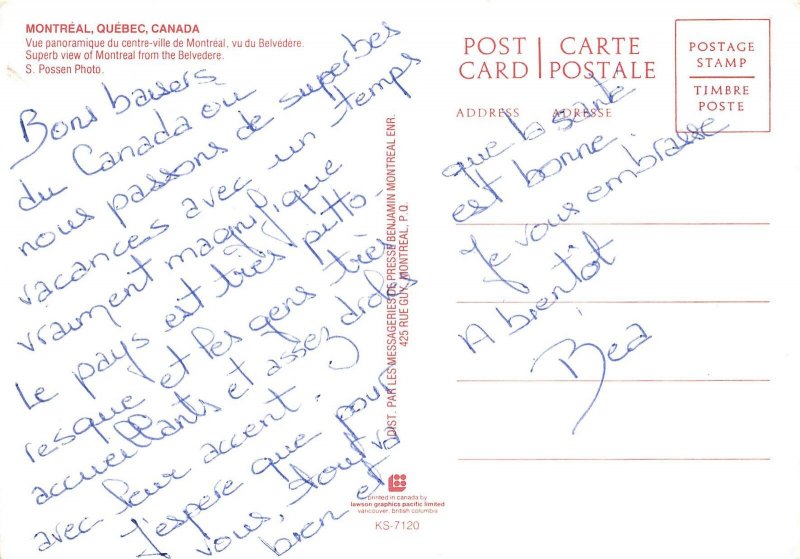 MONTRÉAL, QUÉBEC, CANADA
Vue panoramique du centre-ville de Montréal, vu du Belvédère.
Superb view of Montreal from the Belvedere.
S. Possen Photo.
Bons baisers
du Canada ou
nous passons de superbes
vacances avec un temps
vraiment magnifique
Le pays est très pitto-
resque et les gens très
accueillants et assez drôles
avec leur accent.
J'espère que pour
vous, tout va
bien et
DIST. PAR LES MESSAGERIES DE PRESSE BENJAMIN MONTREAL ENR.
425 RUE GUY, MONTREAL, P.Q.
printed in canada by
lawson graphics pacific limited
vancouver, british columbia
KS-7120
POST CARD
CARTE POSTALE
ADDRESS
ADRESSE
POSTAGE
STAMP
TIMBRE
POSTE
que la santé
est bonne.
Je vous embrasse
A bientôt
Bea